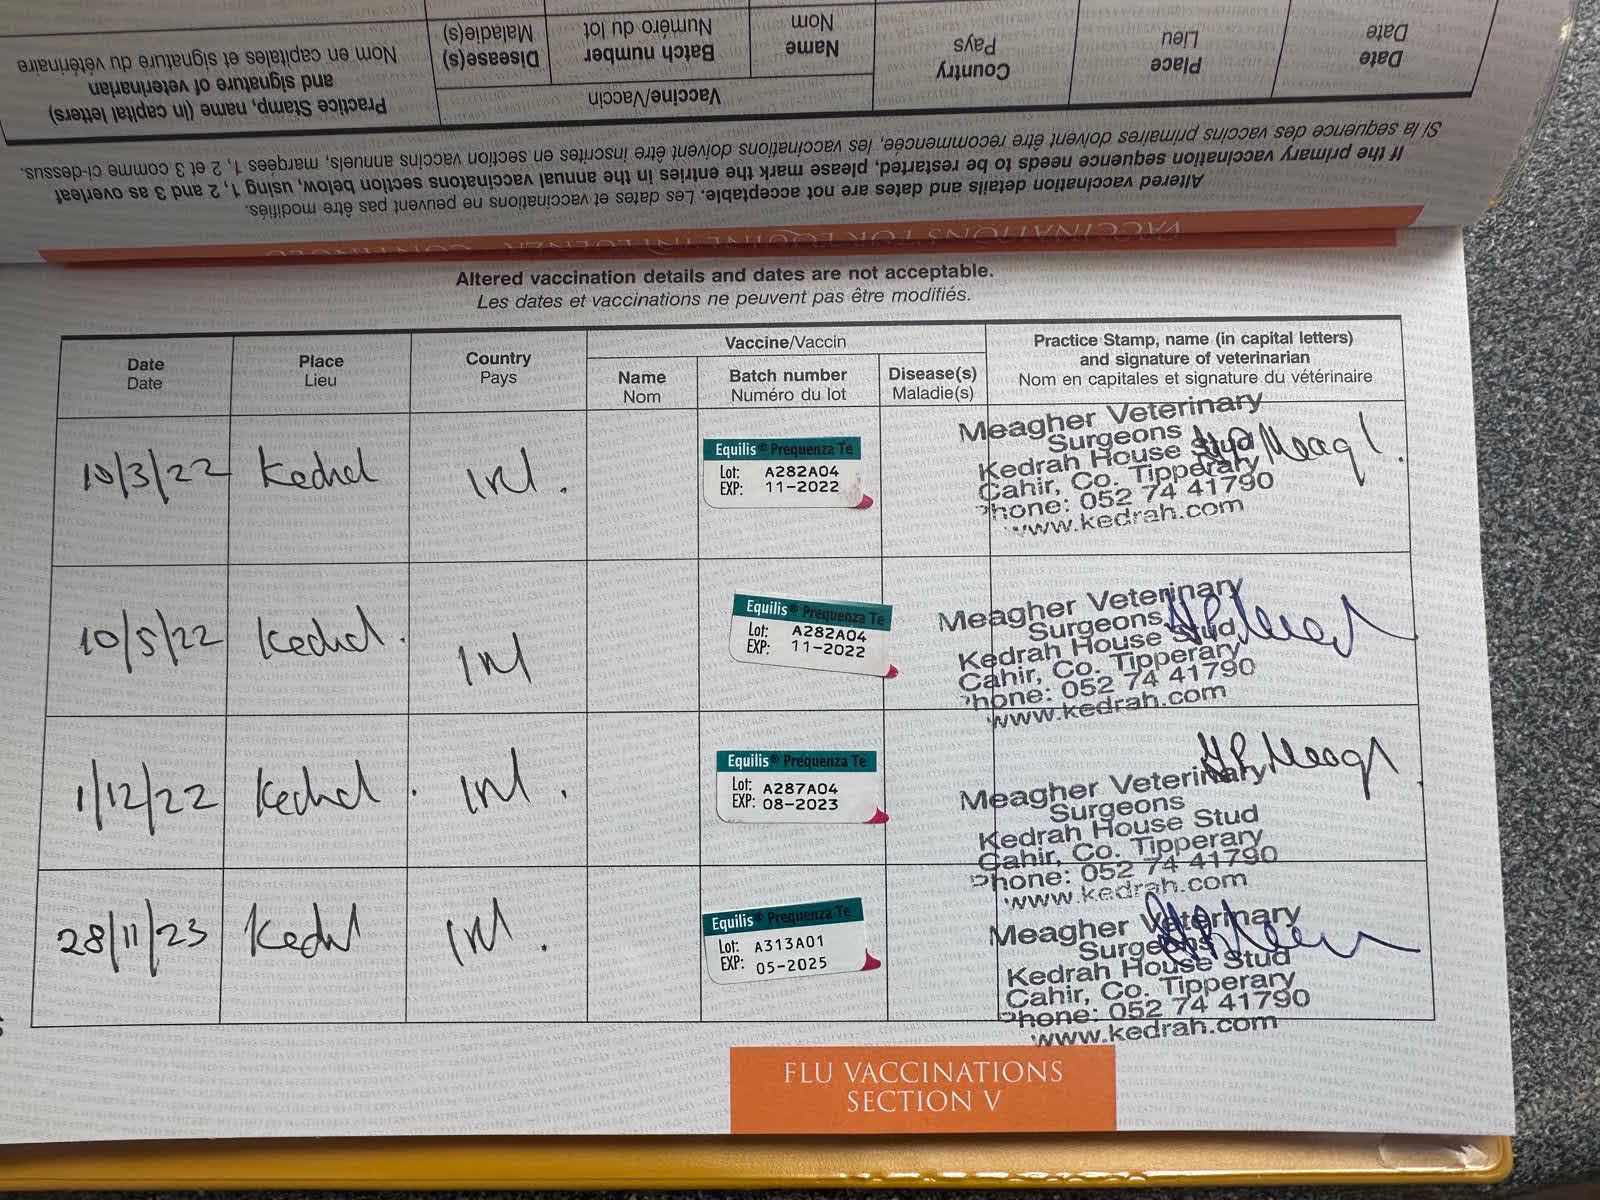 Nom en capitales et signature du vétérinaire
and signature of veterinarian
Practice Stamp, name (in capital letters)
Maladie(s)
Disease(s)
Numéro du lot
Batch number
Nom
Name
Vaccine/Vaccin
Pays
Country
Lieu
Place
Date
Date
Si la séquence des vaccins primaires doivent être recommencée, les vaccinations doivent être inscrites en section vaccins annuels, marqées 1, 2 et 3 comme ci-dessus.
If the primary vaccination sequence needs to be restarted, please mark the entries in the annual vaccinatons section below, using 1, 2 and 3 as overleaf
Altered vaccination details and dates are not acceptable. Les dates et vaccinations ne peuvent pas être modifiés.
VACCINATIONS FOR EQUINE INFLUENZA - CONTINUED
Altered vaccination details and dates are not acceptable.
Les dates et vaccinations ne peuvent pas être modifiés.
Date
Date
Place
Lieu
Country
Pays
Vaccine/Vaccin
Name
Nom
Batch number
Numéro du lot
Disease(s)
Maladie(s)
Practice Stamp, name (in capital letters)
and signature of veterinarian
Nom en capitales et signature du vétérinaire
10/3/22
Irl.
Equilis® Prequenza Te
Lot: A282A04
EXP: 11-2022
Meagher Veterinary
Surgeons
Kedrah House Stud
Cahir, Co. Tipperary
Phone: 052 74 41790
www.kedrah.com
10/5/22
Irl
Equilis® Prequenza Te
Lot: A282A04
EXP: 11-2022
Meagher Veterinary
Surgeons
Kedrah House Stud
Cahir, Co. Tipperary
Phone: 052 74 41790
www.kedrah.com
1/12/22
Irl.
Equilis® Prequenza Te
Lot: A287A04
EXP: 08-2023
Meagher Veterinary
Surgeons
Kedrah House Stud
Cahir, Co. Tipperary
Phone: 052 74 41790
www.kedrah.com
28/11/23
Irl.
Equilis® Prequenza Te
Lot: A313A01
EXP: 05-2025
Meagher Veterinary
Surgeons
Kedrah House Stud
Cahir, Co. Tipperary
Phone: 052 74 41790
www.kedrah.com
FLU VACCINATIONS
SECTION V